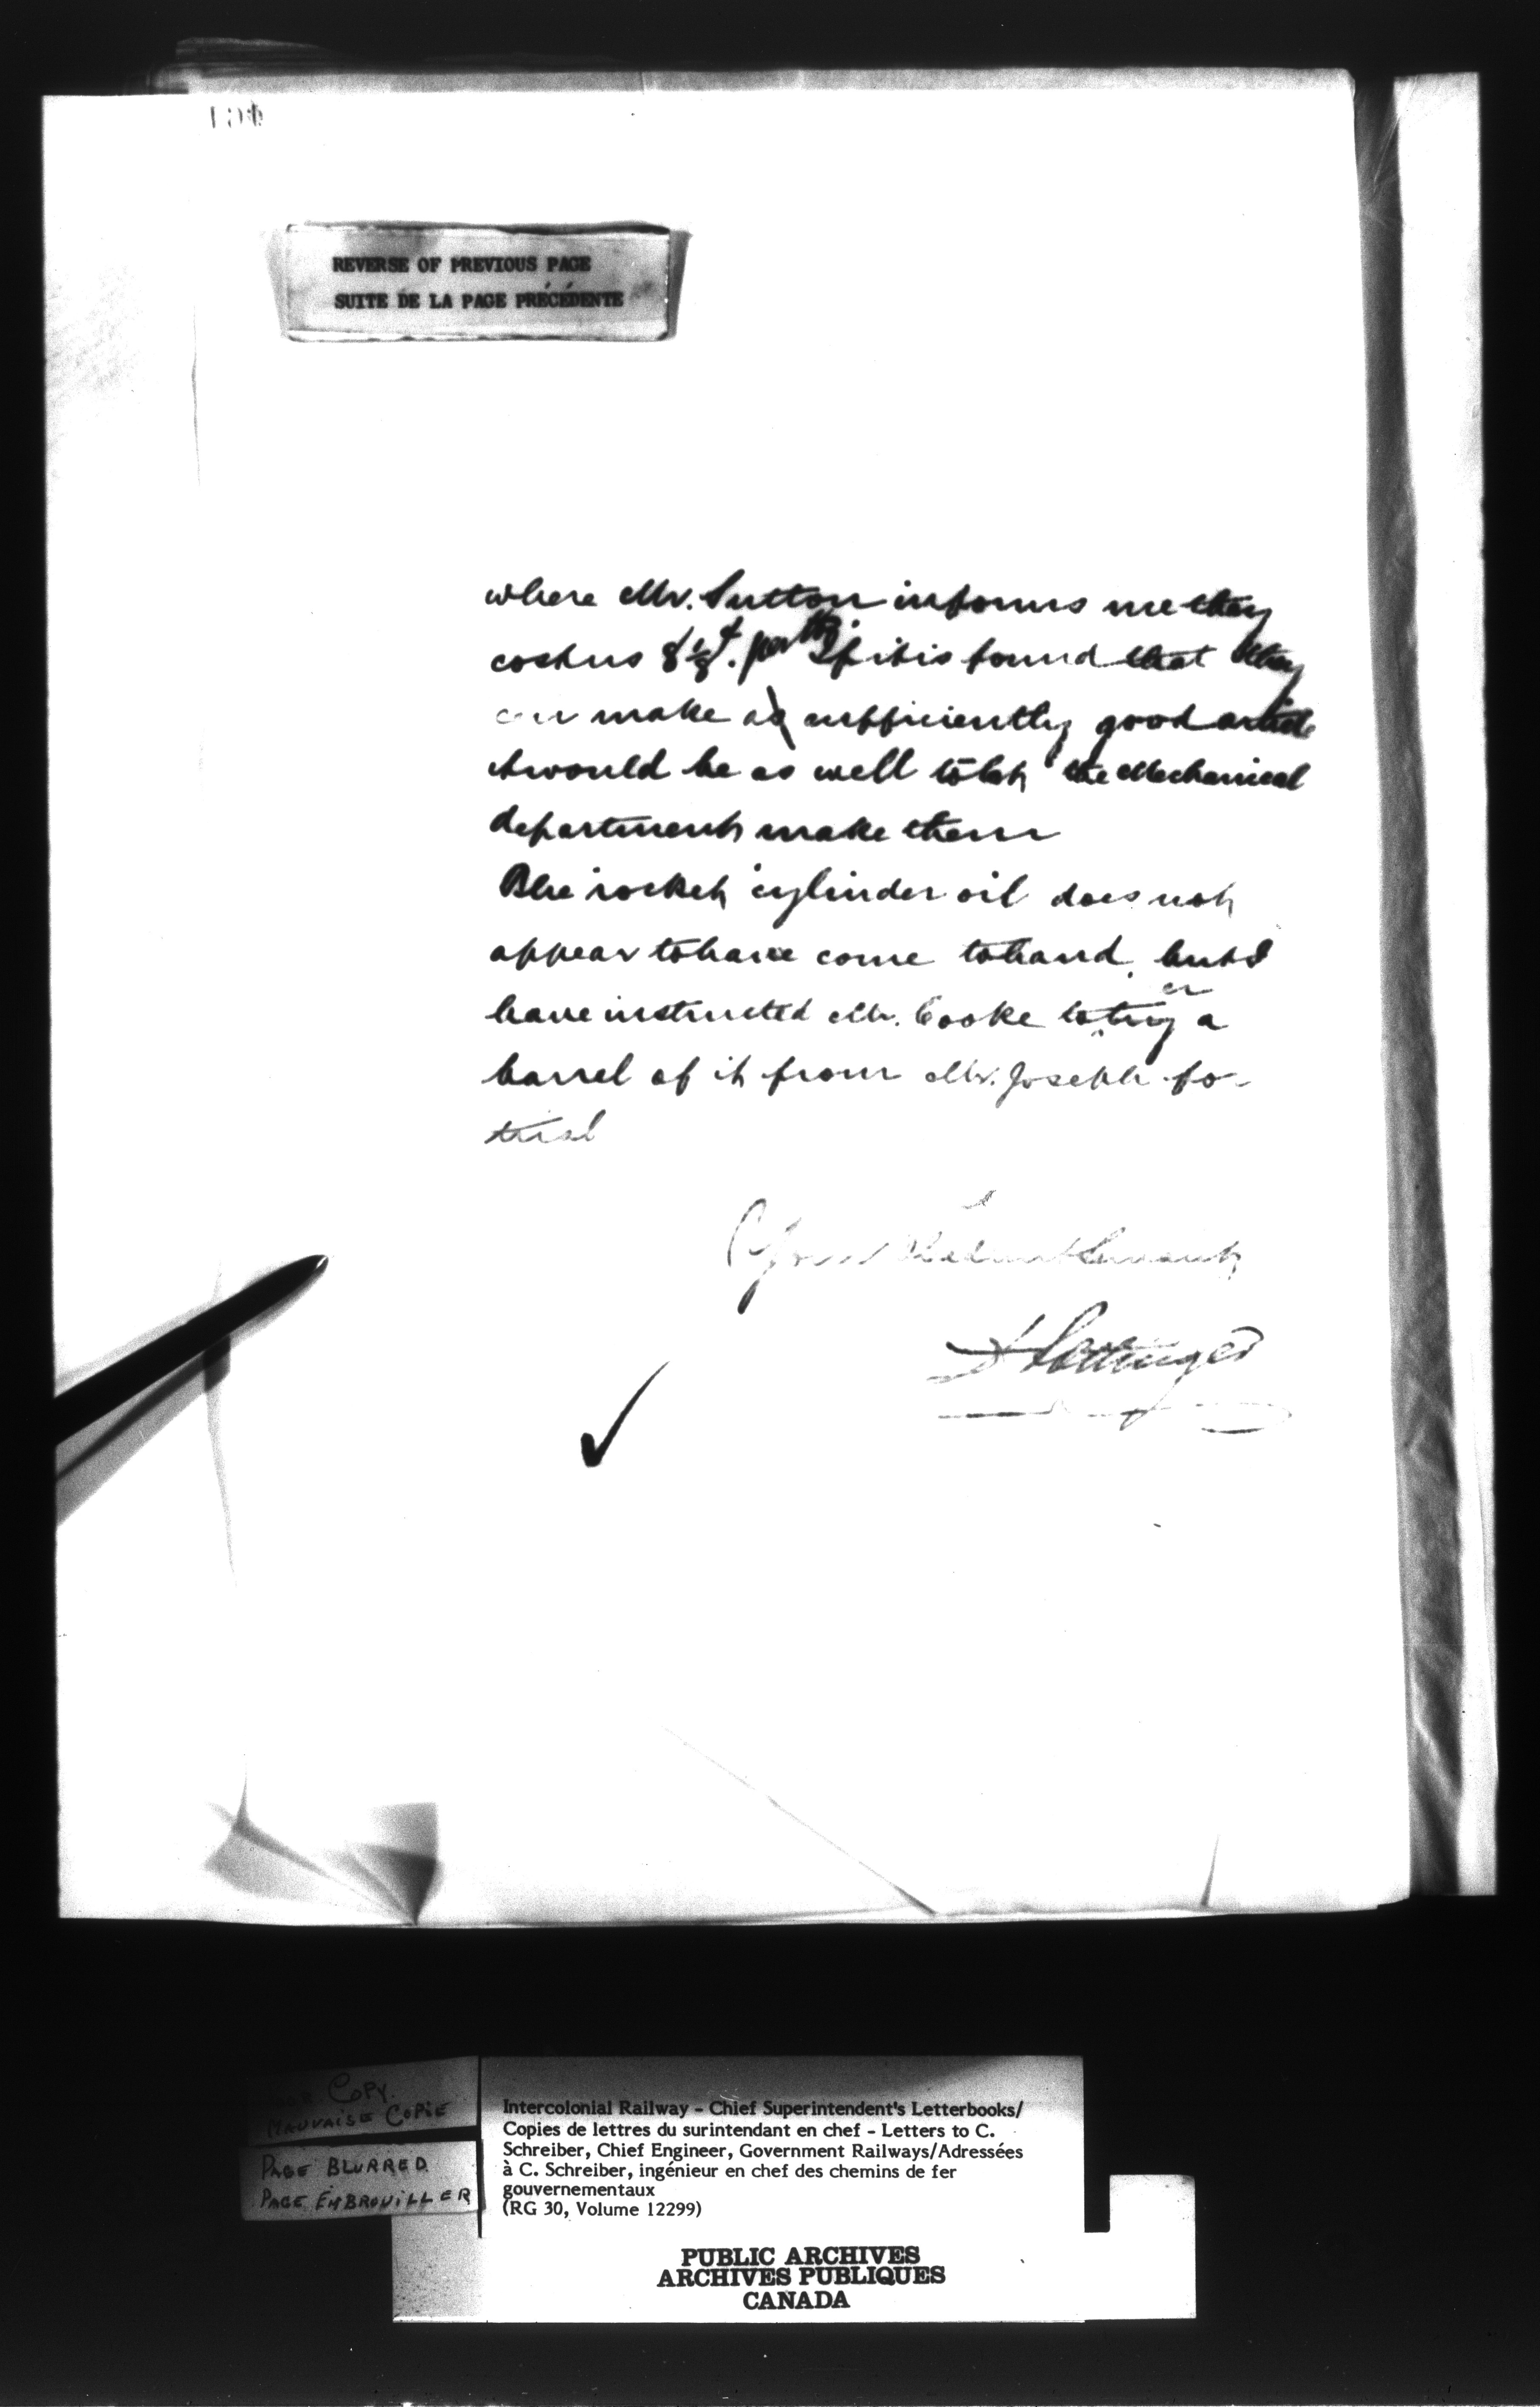 REVERSE OF PREVIOUS PAGE
SUITE DE LA PAGE PRÉCÉDENTE
where Mr. Sutton informs me they
cost us 8 1/8 ¢. per lb. If it is found that they
can make a sufficiently good article
it would be as well to let the Mechanical
department make them
Blue rocket cylinder oil does not
appear to have come to hand, but I
have instructed Mr. Cooke to try a
barrel of it from Mr. Joseph for
trial
Your Obedient Servant
D Pottinger
COPY.
MAUVAISE COPIE
PAGE BLURRED
PAGE EMBROUILLER
Intercolonial Railway - Chief Superintendent's Letterbooks/
Copies de lettres du surintendant en chef - Letters to C.
Schreiber, Chief Engineer, Government Railways/Adressées
à C. Schreiber, ingénieur en chef des chemins de fer
gouvernementaux
(RG 30, Volume 12299)
PUBLIC ARCHIVES
ARCHIVES PUBLIQUES
CANADA